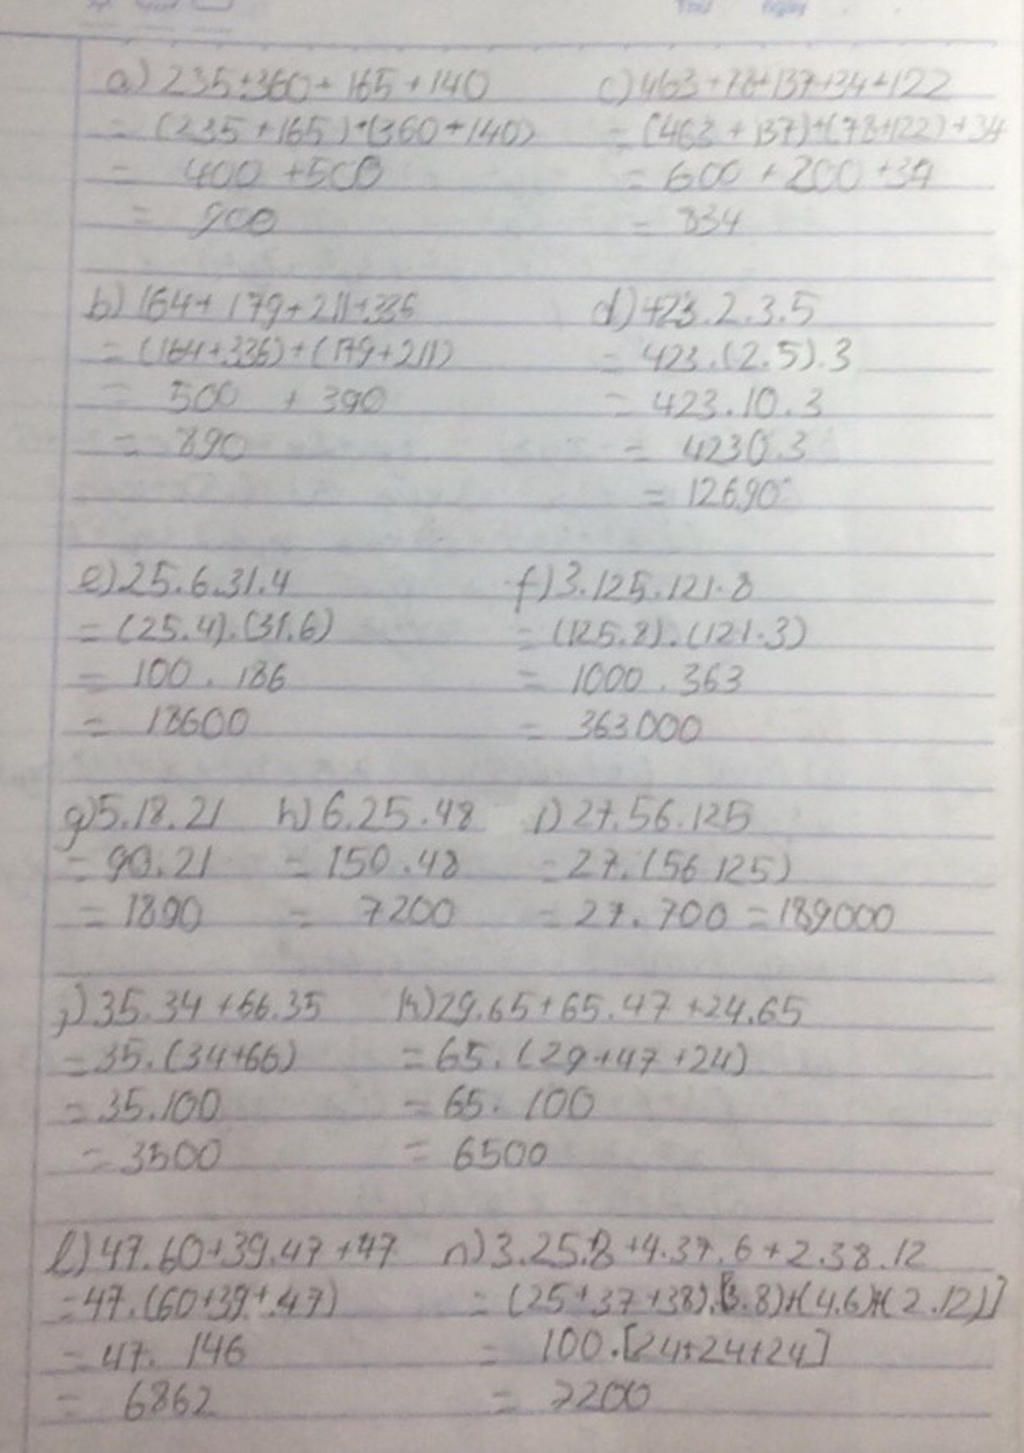 Thứ Ngày
a) 235+360+165+140
= (235+165)+(360+140)
= 400+500
= 900
c) 463+78+137+34+122
= (463+137)+(78+122)+34
= 600+200+34
= 834
b) 164+179+211+336
= (164+336)+(179+211)
= 500 + 390
= 890
d) 423.2.3.5
= 423.(2.5).3
= 423.10.3
= 4230.3
= 12690
e) 25.6.31.4
= (25.4).(31.6)
= 100.186
= 18600
f) 3.125.121.8
= (125.8).(121.3)
= 1000.363
= 363000
g) 5.18.21
= 90.21
= 1890
h) 6.25.48
= 150.48
= 7200
i) 27.56.125
= 27.(56 125)
= 27.700 = 189000
j) 35.34+66.35
= 35.(34+66)
= 35.100
= 3500
k) 29.65+65.47+24.65
= 65.(29+47+24)
= 65.100
= 6500
l) 47.60+39.47+47
= 47.(60+39+47)
= 47.146
= 6862
n) 3.25.8+4.37.6+2.38.12
= (25+37+38).[3.8)+(4.6)+(2.12)]
= 100.[24+24+24]
= 7200